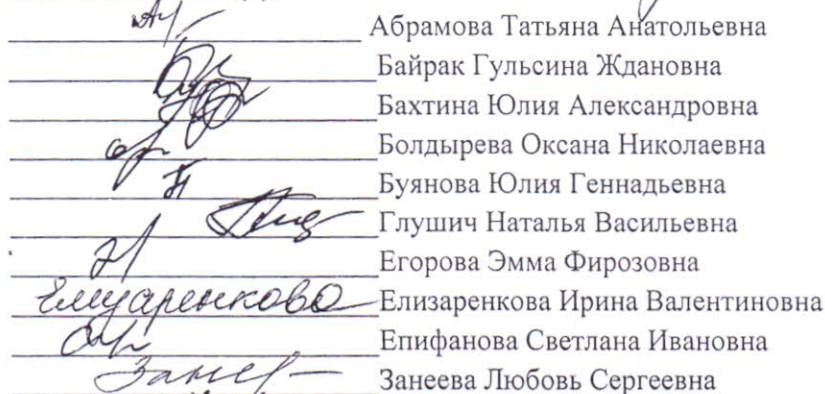 Абрамова Татьяна Анатольевна
Байрак Гульсина Ждановна
Бахтина Юлия Александровна
Болдырева Оксана Николаевна
Буянова Юлия Геннадьевна
Глушич Наталья Васильевна
Егорова Эмма Фирозовна
Елизаренкова Елизаренкова Ирина Валентиновна
Епифанова Светлана Ивановна
Занеева Любовь Сергеевна